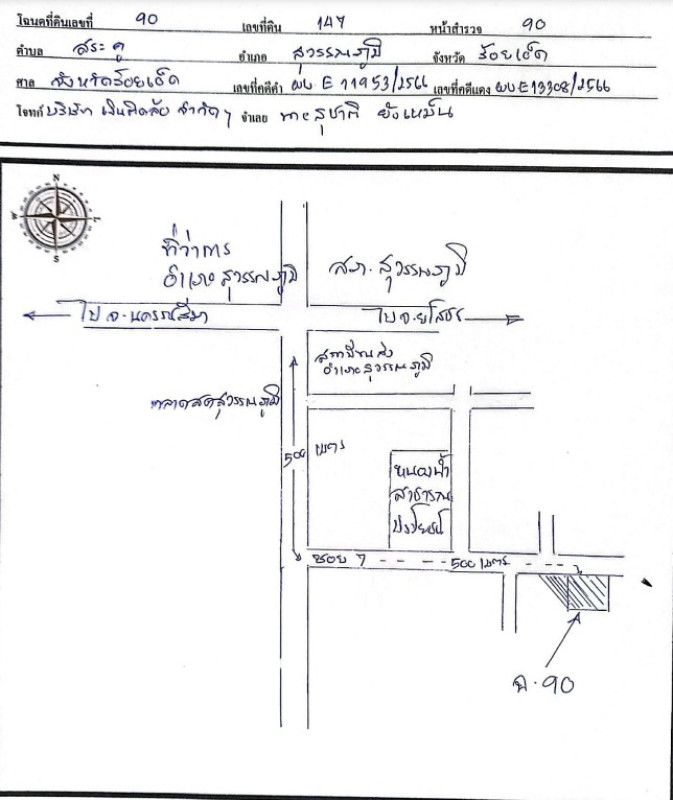 โฉนดที่ดินเลขที่ 90 เลขที่ดิน 147 หน้าสำรวจ 90
ตำบล สระคู อำเภอ สุวรรณภูมิ จังหวัด ร้อยเอ็ด
ศาล จังหวัดร้อยเอ็ด เลขที่คดีดำ ผบ E 11953/2566 เลขที่คดีแดง ผบ E 13308/2566
โจทก์ บริษัท เงินติดล้อ จำกัด ฯ จำเลย นายสุชาติ ยังเหม็น
N
W
S
ที่ว่าการ
อำเภอสุวรรณภูมิ
สภ. สุวรรณภูมิ
ไป จ.นครราชสีมา
ไป จ.ยโสธร
สถานีขนส่ง
อำเภอสุวรรณภูมิ
ตลาดสดสุวรรณภูมิ
500 เมตร
หนองน้ำ
สาธารณ
ประโยชน์
ซอย 7
500 เมตร
ฉ.90